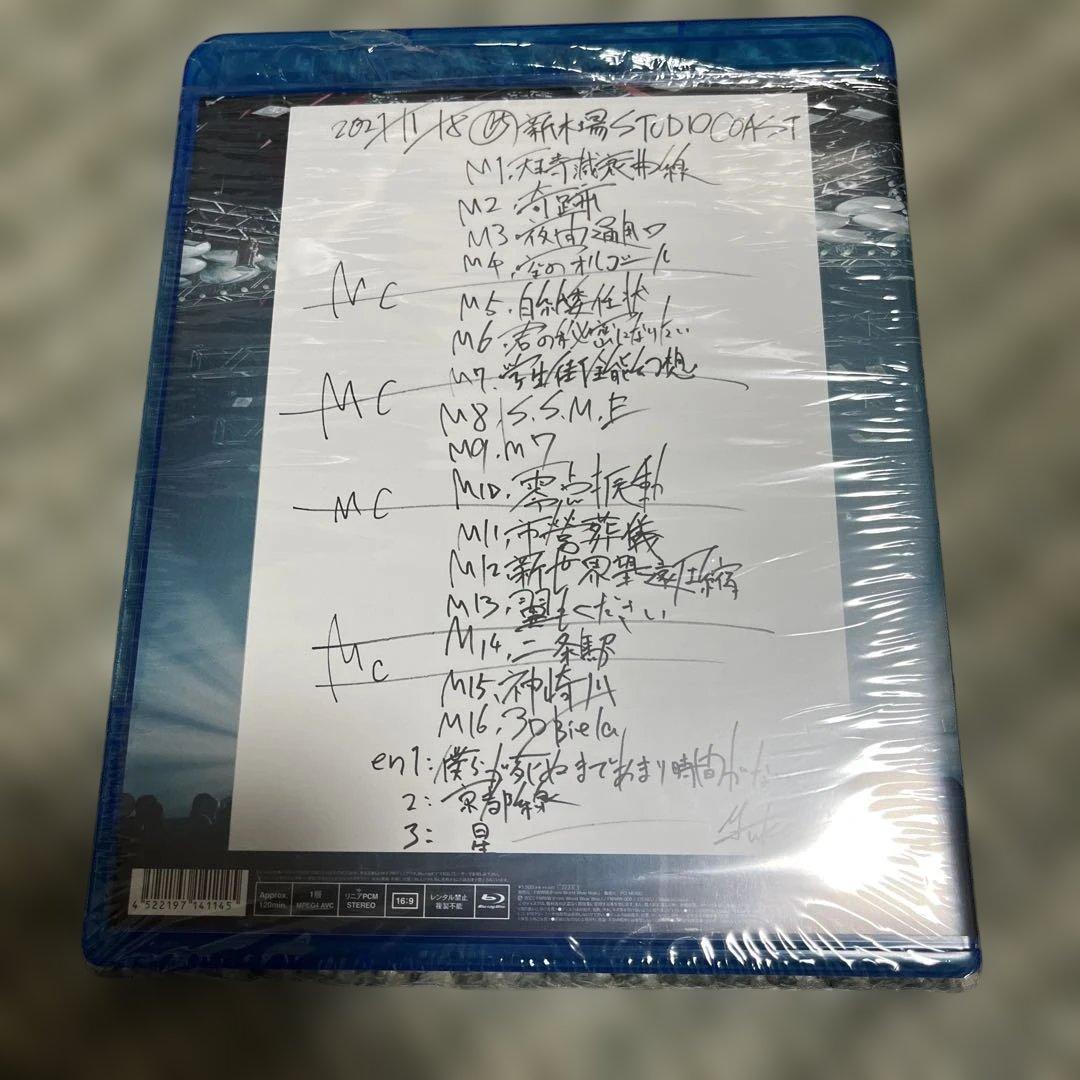 2021/11/18 新木場STUDIOCOAST
M1.天王寺減衰曲線
M2.奇跡
M3.夜間通用口
M4.空のオルゴール
MC
M5.白紙委任状
M6.君の秘密になりたい
M7.学生街全能幻想
MC
M8.S.S.M.E
M9.m7
M10.零点振動
MC
M11.市営葬儀
M12.新世界望遠圧縮
M13.翼をください
M14.二条駅
MC
M15.神崎川
M16.3D Biela
en1:僕らが死ぬまであまり時間がな
2:京都線
3:星
4 522197 141145
Approx. 120min.
1層 MPEG4 AVC
リニアPCM STEREO
16:9
レンタル禁止 複製不能
Blu-ray Disc